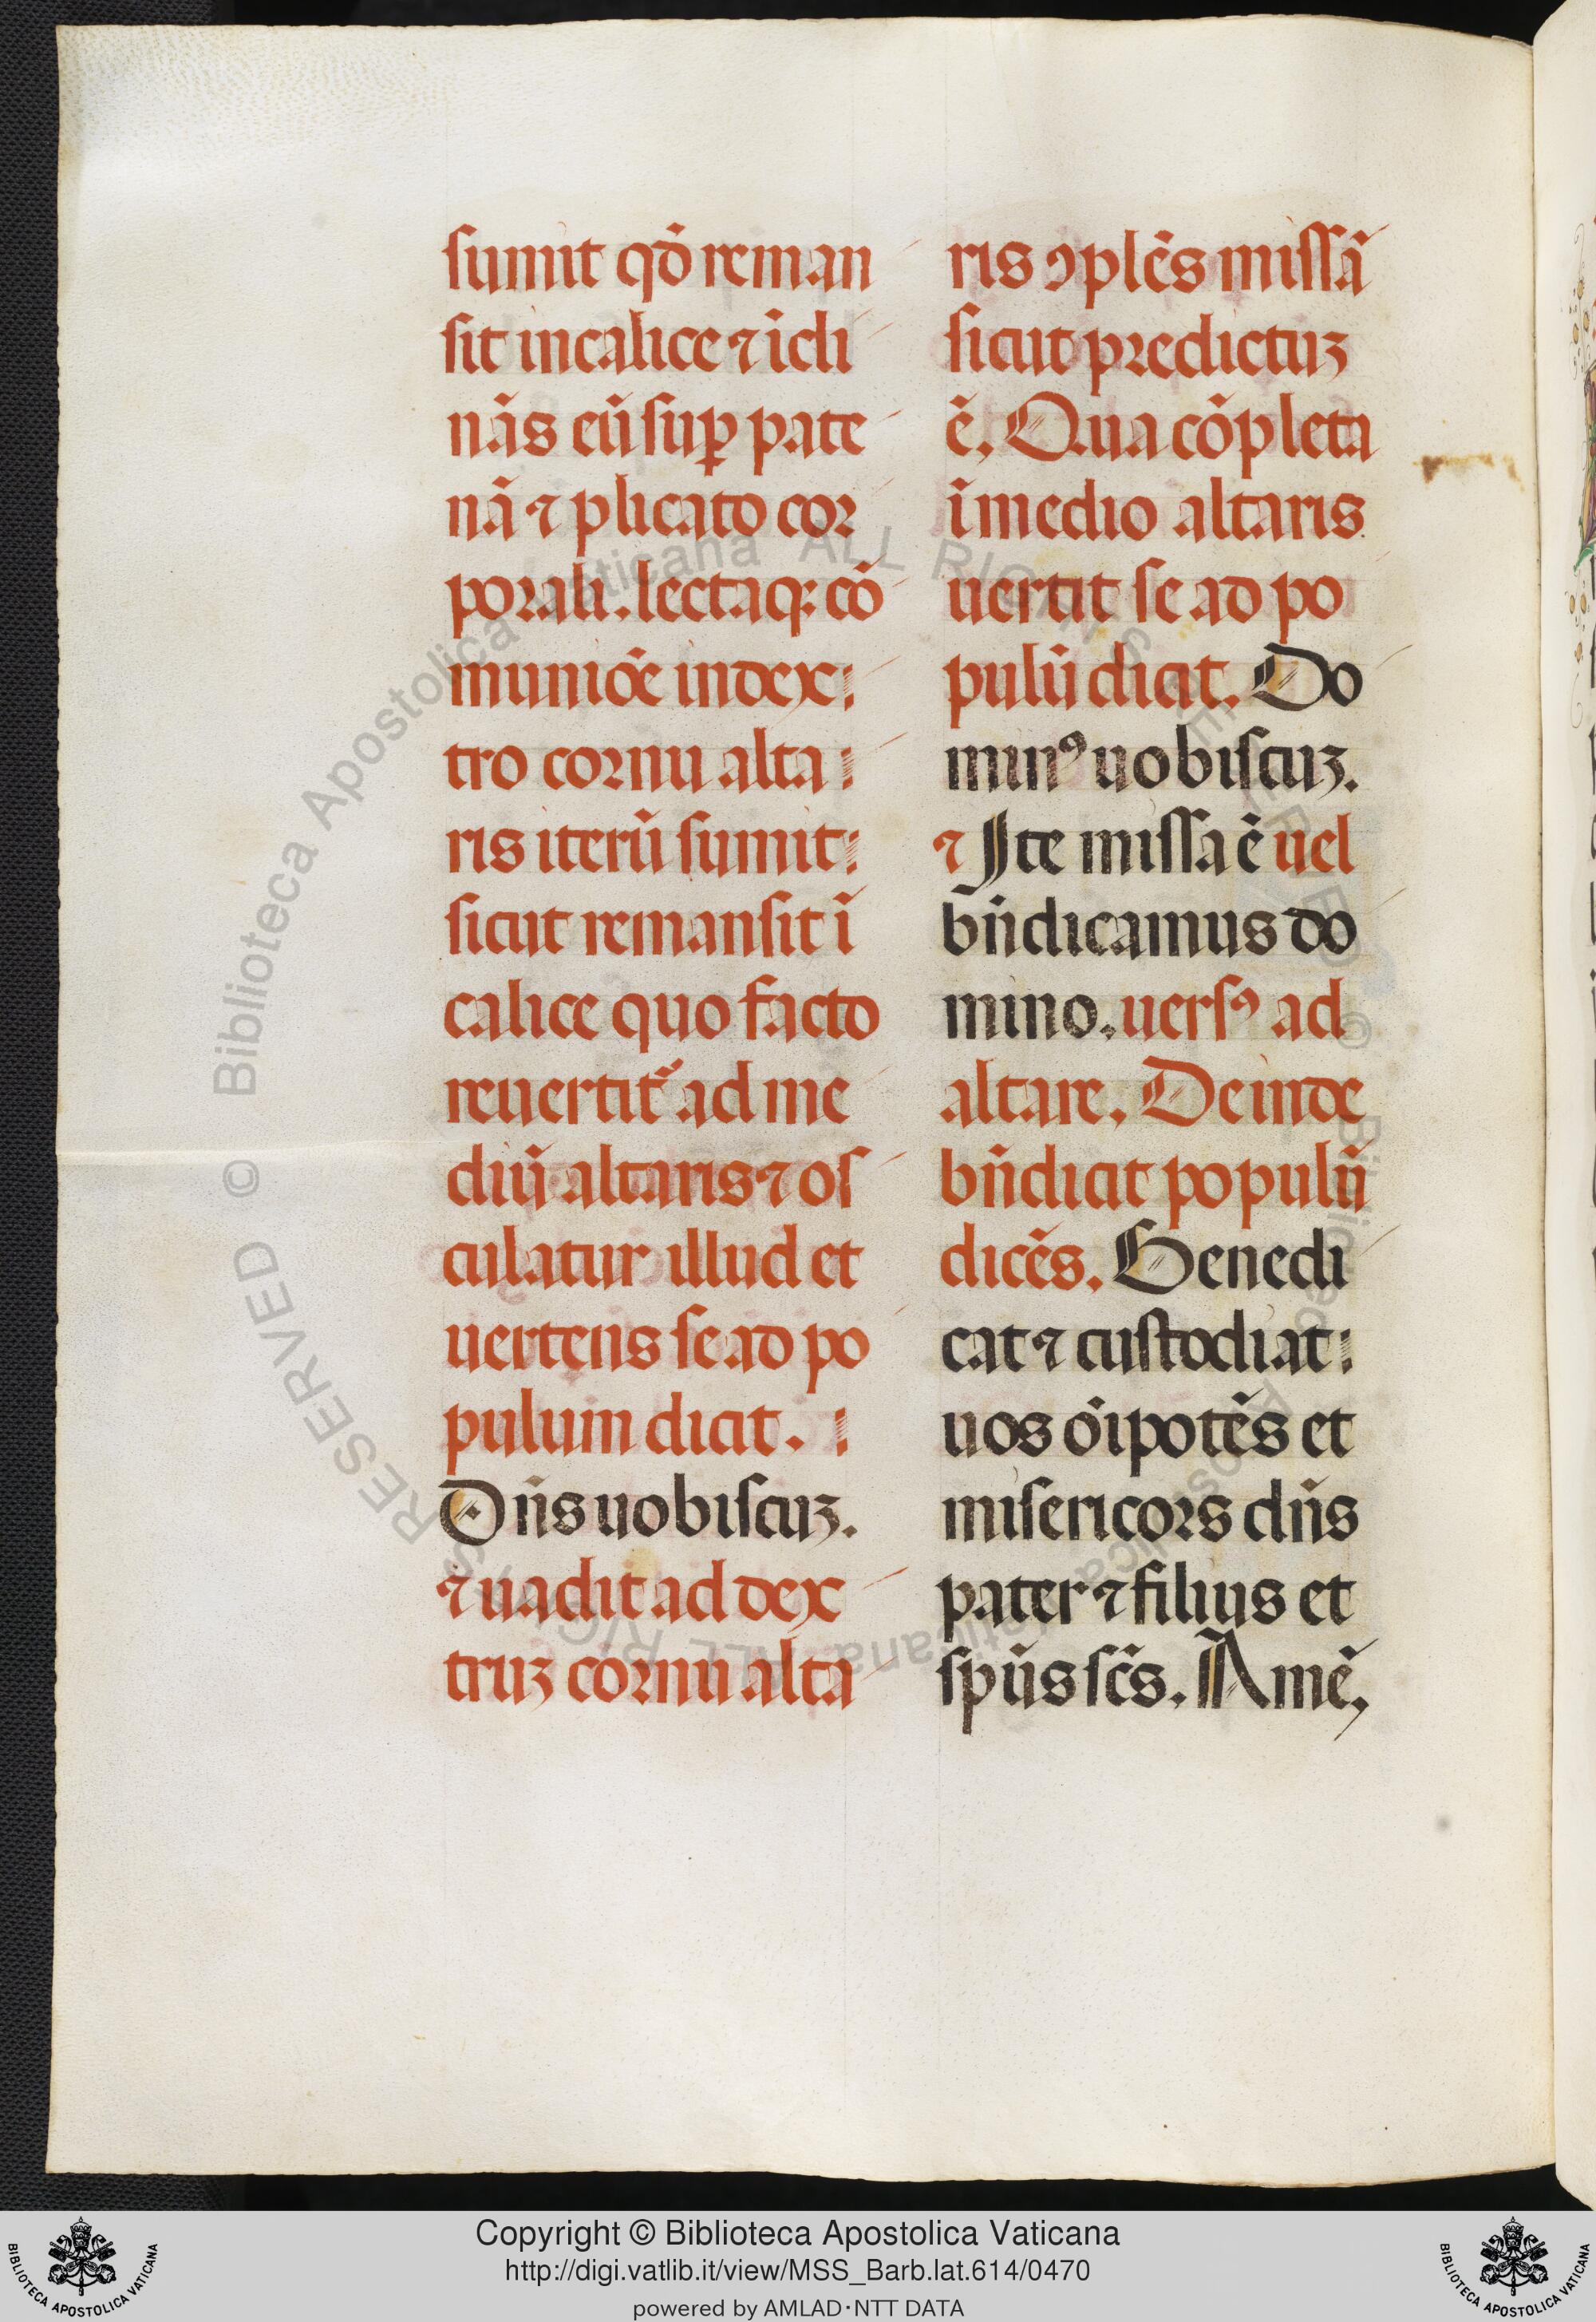 sumit qd̄ reman
sit in calice ⁊ īcli
nās eū suꝑ pate
nā ⁊ plicato cor
porali. lectaqꝫ cō
muniōe in dex
tro cornu alta
ris iterū sumit
sicut remansit ī
calice quo facto
reuertit᷑ ad me
diū altaris ⁊ os
culatur illud et
uertens se ad po
pulum dicit.
Dn̄s uobiscuꝫ.
⁊ uadit ad dex
truꝫ cornu alta
ris ꝯplēs missā
sicut predictuꝫ
ē. Qua cōpleta
ī medio altaris
uertit se ad po
pulū dicit. Do
minꝰ uobiscuꝫ.
⁊ Ite missa ē uel
bn̄dicamus do
mino. uersꝰ ad
altare. Deinde
bn̄dicit populū
dicēs. Benedi
cat ⁊ custodiat
uos oīpotēs et
misericors dn̄s
pater ⁊ filius et
spūs scs̄. Amē.
© Biblioteca Apostolica Vaticana ALL RIGHTS RESERVED © Biblioteca Apostolica Vaticana ALL RIGHTS RESERVED
Copyright © Biblioteca Apostolica Vaticana
http://digi.vatlib.it/view/MSS_Barb.lat.614/0470
powered by AMLAD·NTT DATA
BIBLIOTECA APOSTOLICA VATICANA
BIBLIOTECA APOSTOLICA VATICANA